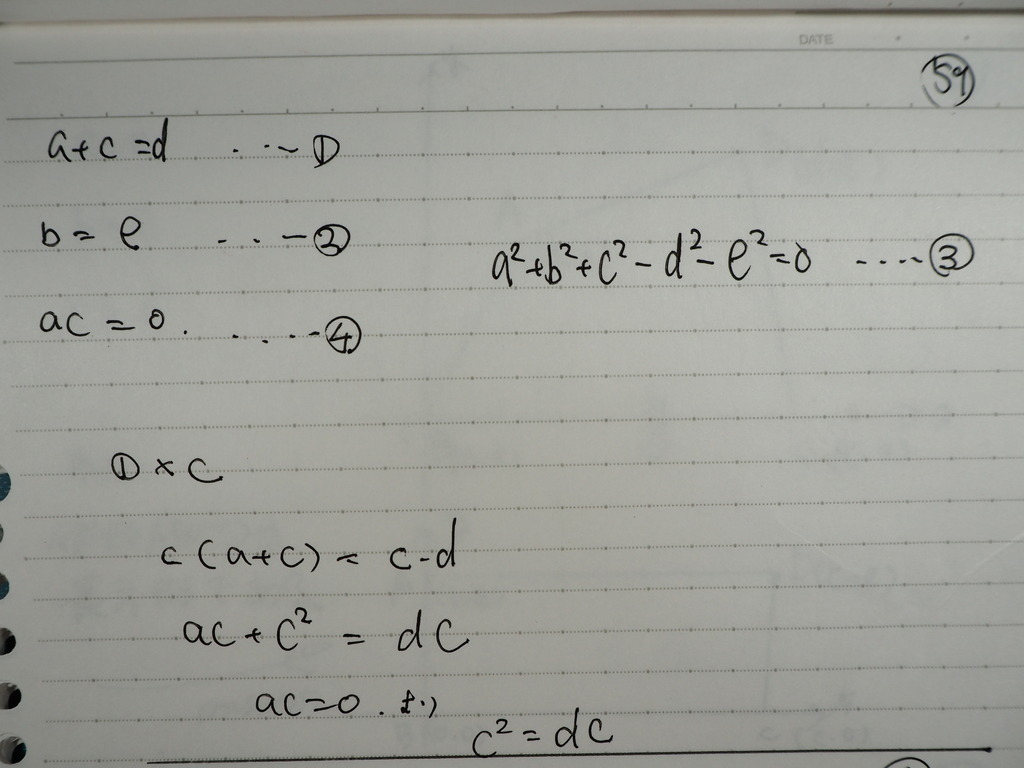 DATE
59
a+c=d ..... ①
b=e ..... ②
a²+b²+c²-d²-e²=0 ..... ③
ac=0. ..... ④
①×c
c(a+c)=c·d
ac+c²=dc
ac=0. より
c²=dc